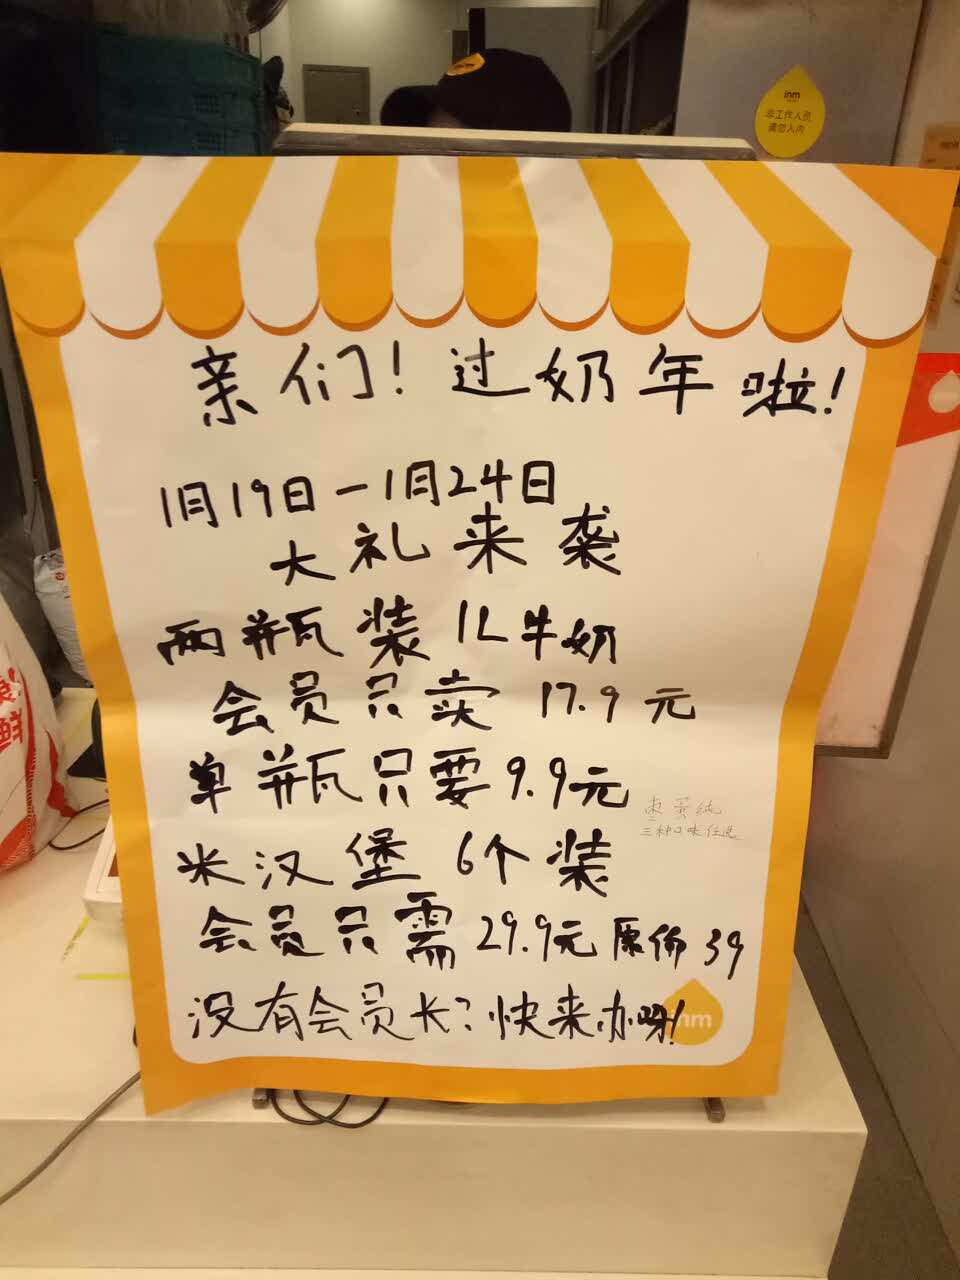 inm
非工作人员
请勿入内
亲们！过奶年啦！
1月19日－1月24日
大礼来袭
两瓶装 1L牛奶
会员只卖 17.9元
单瓶只要9.9元
枣蛋纯
三种口味任选
米汉堡 6个装
会员只需29.9元 原价39
没有会员长？快来办呀！
inm
鲜